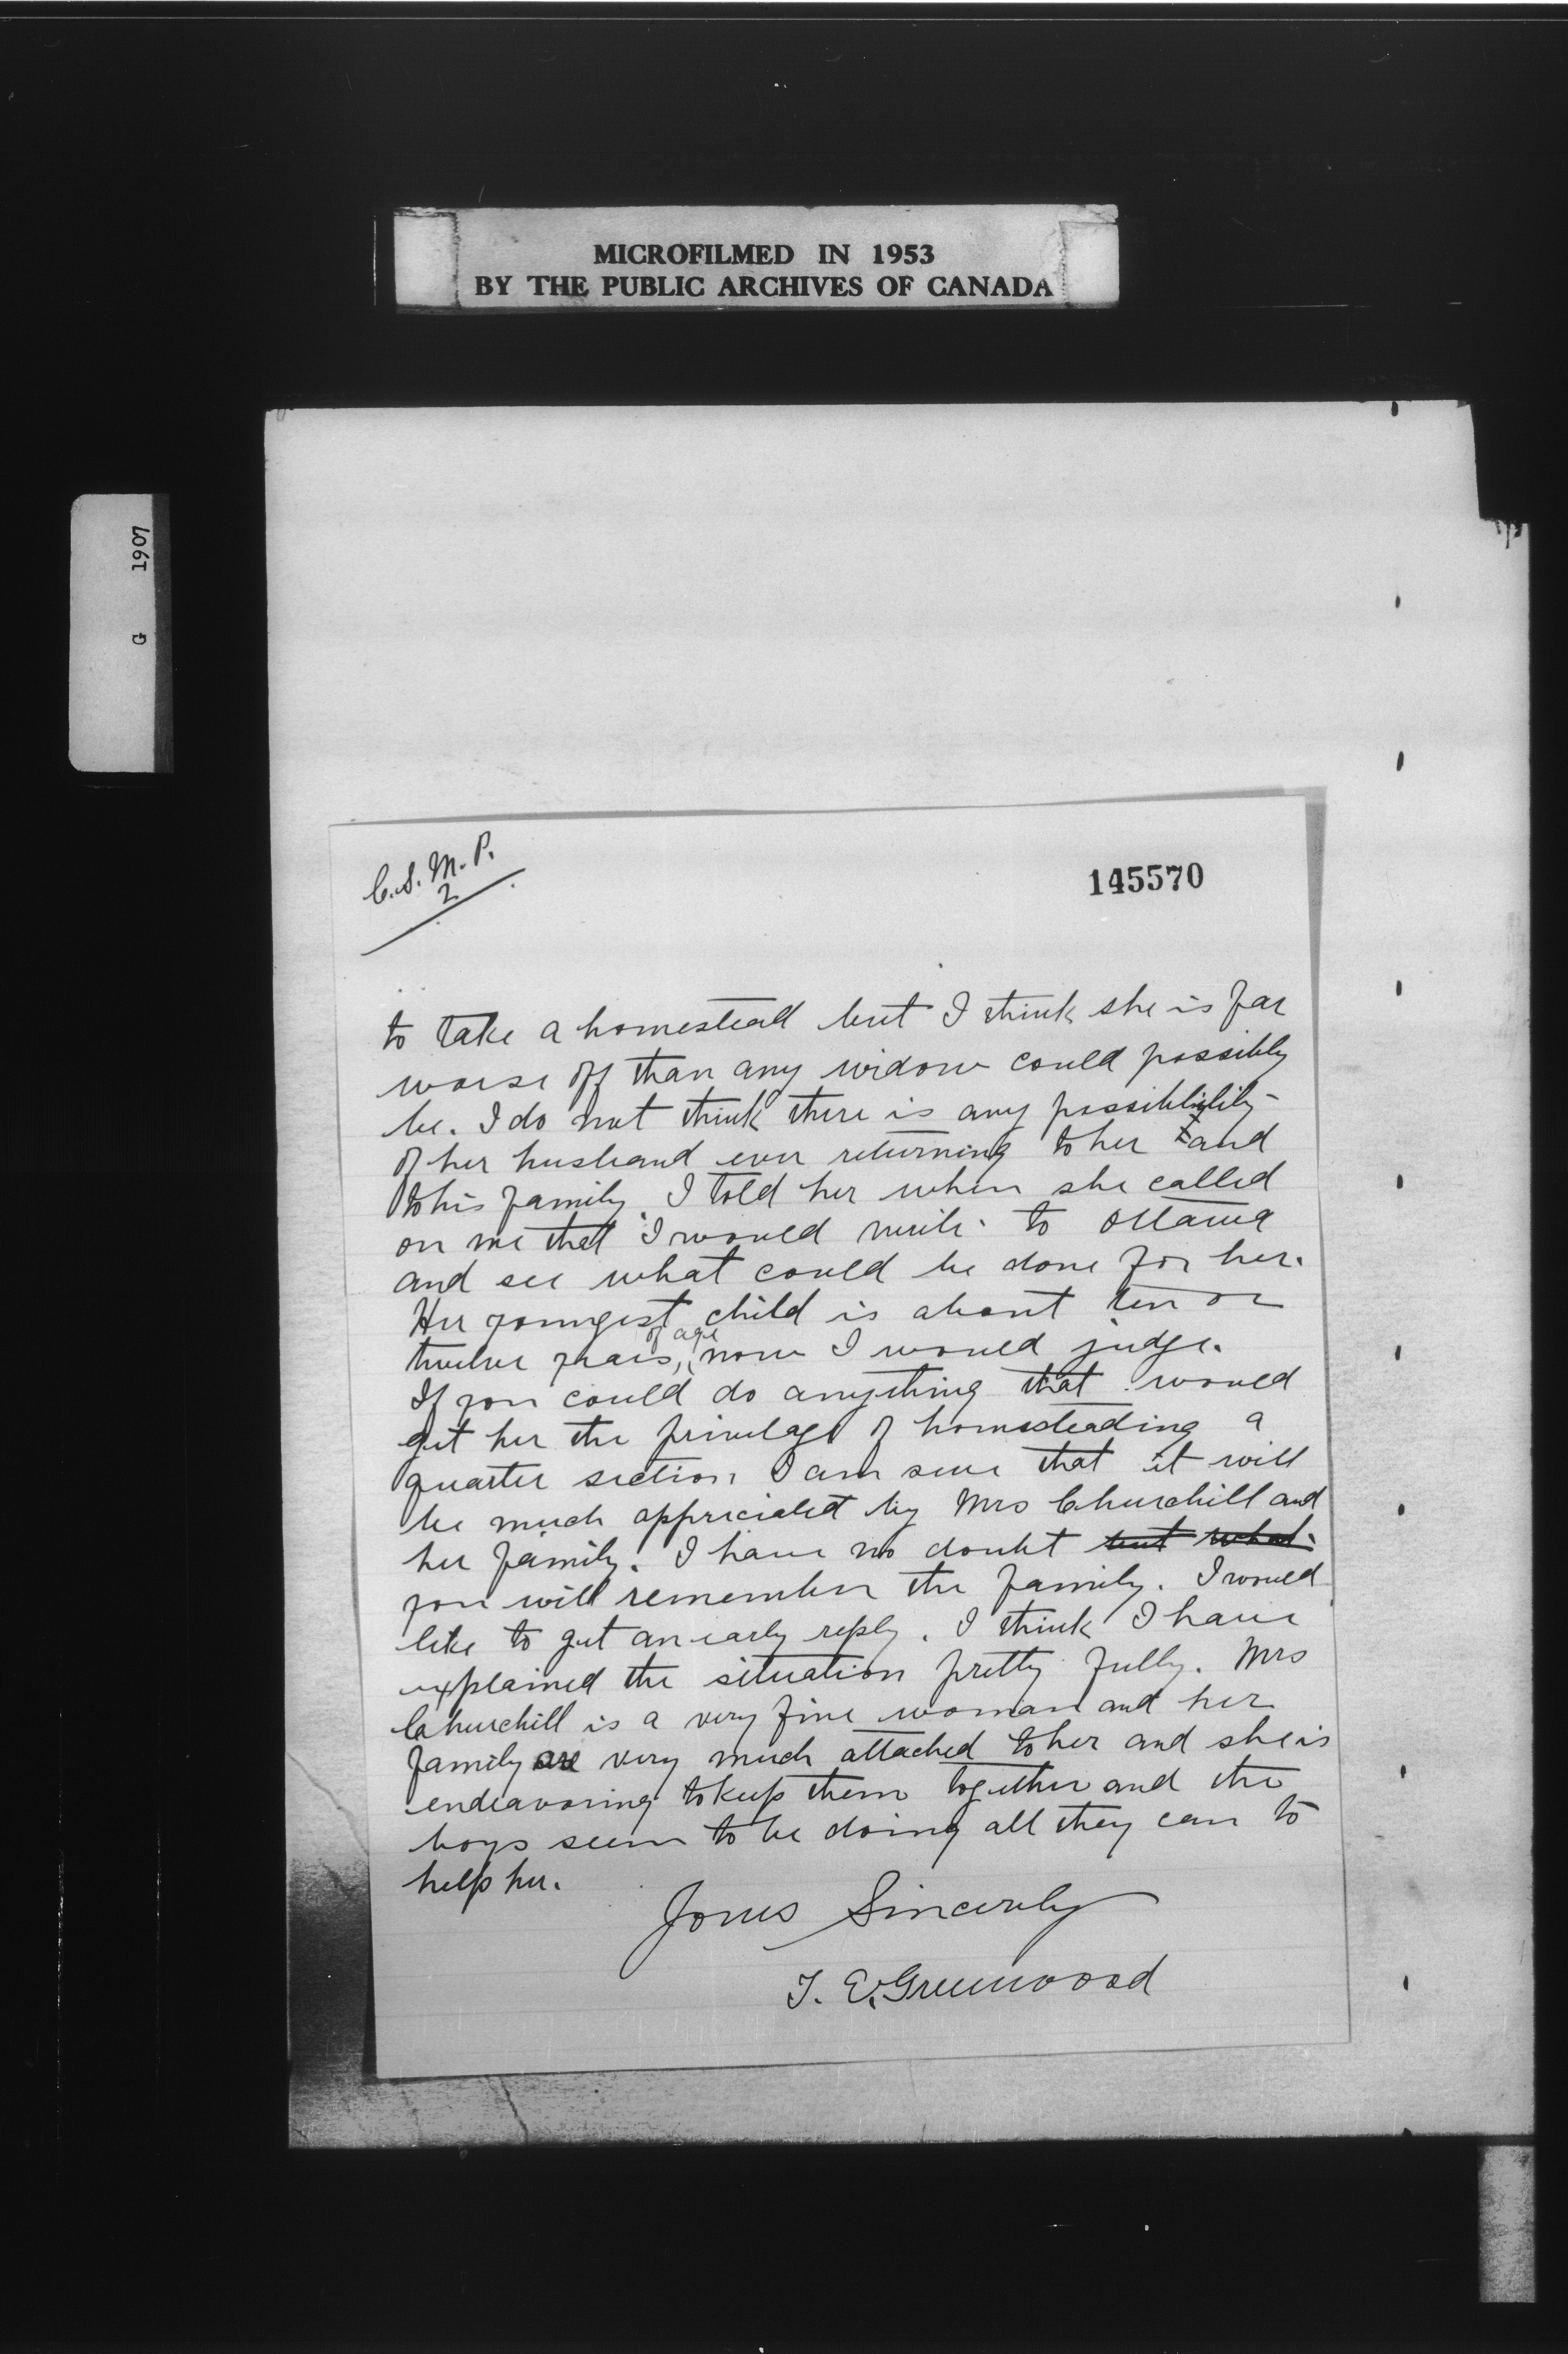 MICROFILMED IN 1953
BY THE PUBLIC ARCHIVES OF CANADA
G 1907
C.S.M.P.
2
145570
to take a homestead but I think she is far
worse off than any widow could possibly
be. I do not think there is any possiblility
of her husband ever returning to her and
to his family. I told her when she called
on me that I would write to Ottawa
and see what could be done for her.
Her youngest child is about ten or
twelve years, of age now I would judge.
If you could do anything that would
get her the privelage of homesteading a
quarter section I am sure that it will
be much appriciated by Mrs Churchill and
her family. I have no doubt but what
you will remember the family. I would
like to get an early reply. I think I have
explained the situation pretty fully. Mrs
Churchill is a very fine woman and her
family are very much attached to her and she is
endeavoring to keep them together and the
boys seem to be doing all they can to
help her.
Yours Sincerely
T. E. Greenwood